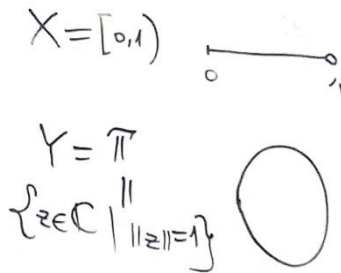 X = [0,1)
0 1
Y = 𝕋
||
{z∈ℂ | ||z||=1}